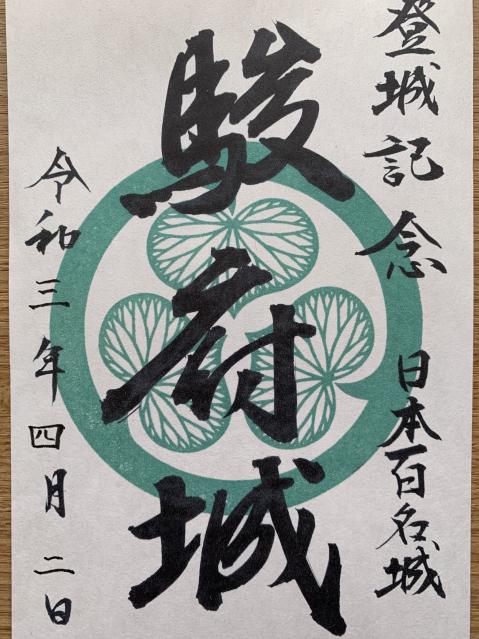 登城記念 日本百名城
駿府城
令和三年四月二日